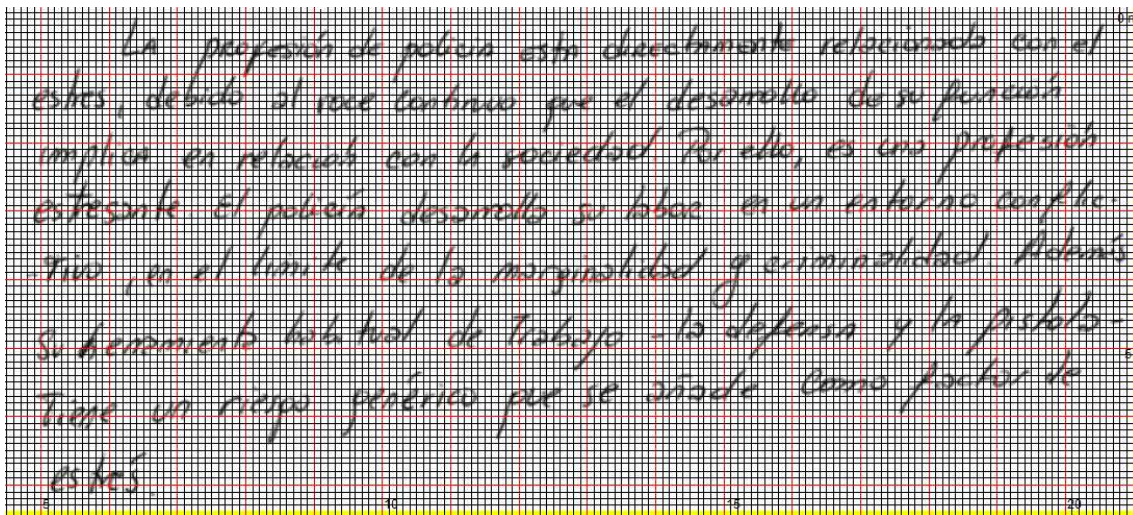 LA profesión de policia esta directamente relacionada con el
estres, debido al roce continuo que el desarrollo de su función
implica en relación con la sociedad Por ello, es una profesión
estresante. El policia desarrolla su labor en un entorno conflic-
-Tivo, en el limite de la marginalidad y criminalidad Además
su herramienta habitual de Trabajo - la defensa y la pistola -
Tiene un riesgo genérico que se añade como factor de
estrés.
0
5
5 10 15 20